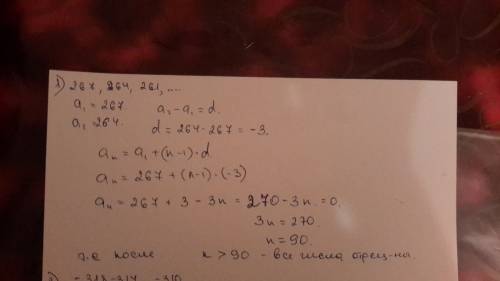 1) 267, 264, 261, ....
a₁ = 267. a₂ - a₁ = d.
a₂ = 264. d = 264 - 267 = -3.
aₙ = a₁ + (n-1)·d
aₙ = 267 + (n-1)·(-3)
aₙ = 267 + 3 - 3n = 270 - 3n = 0.
3n = 270.
n = 90.
т.е после n > 90 - все числа отриц-ны.
2) -318 -314 -310